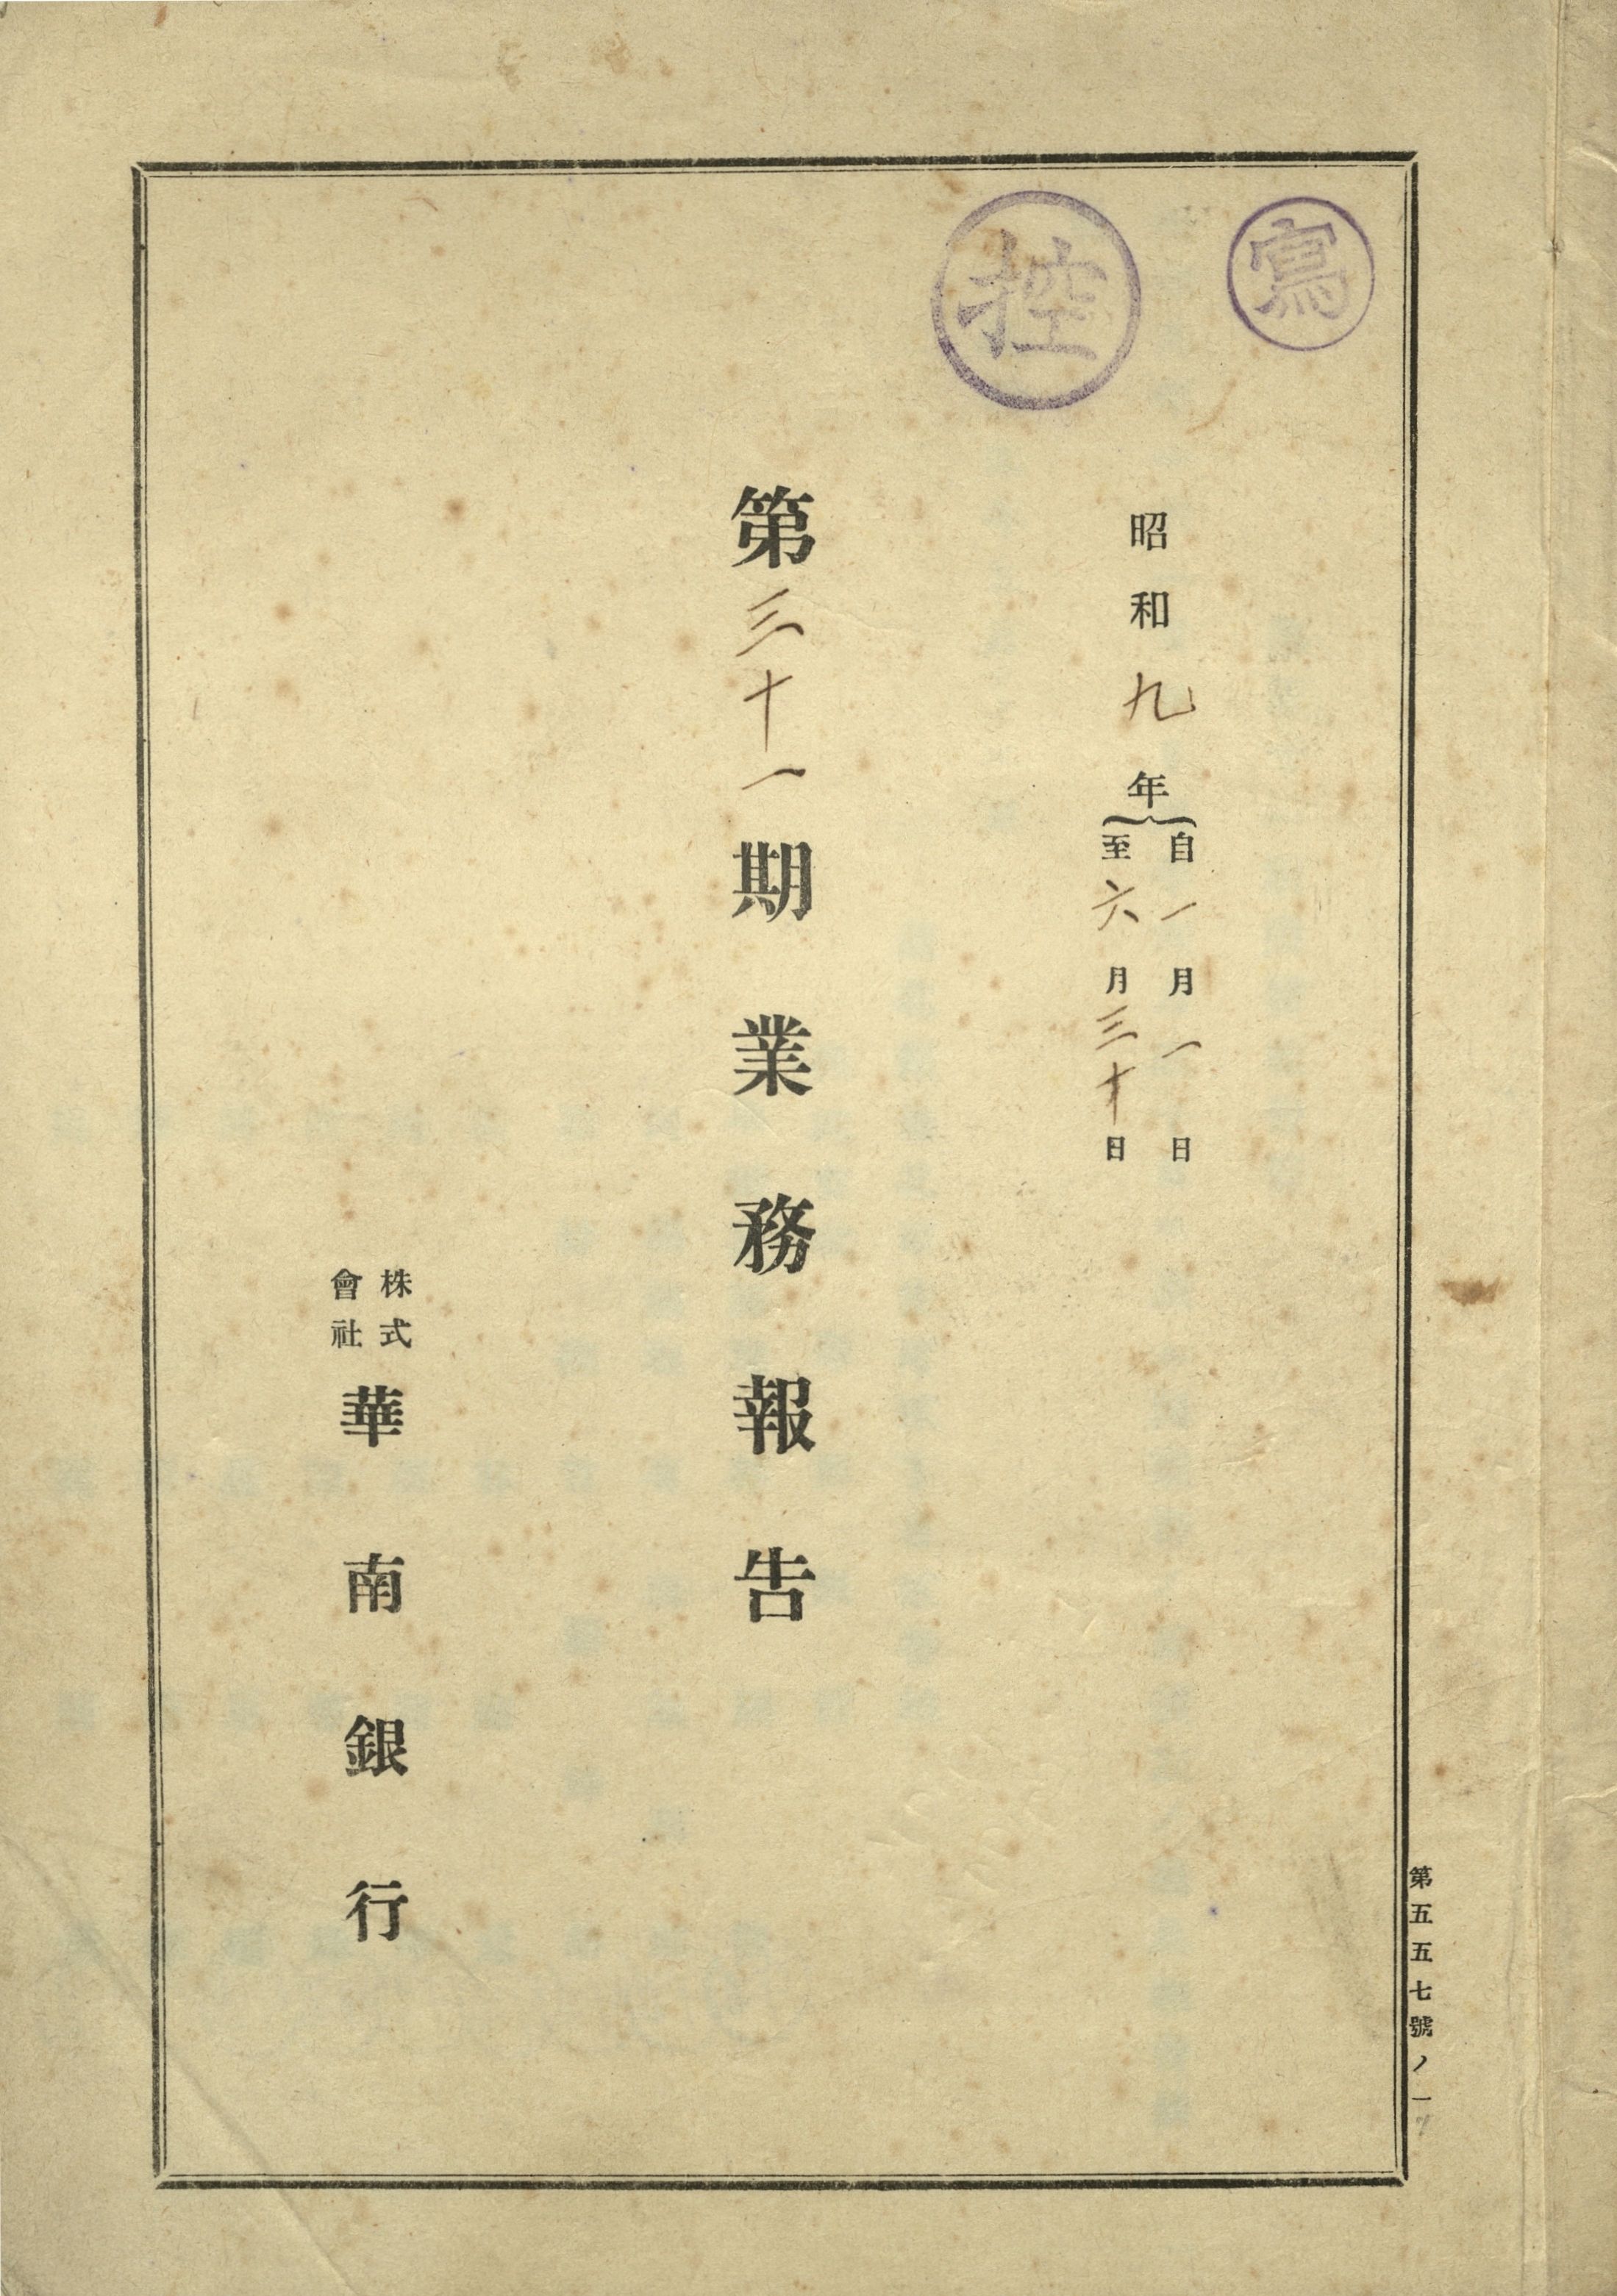 寫
控
昭和九年
自一月一日
至六月三十日
第三十一期業務報告
株式會社
華南銀行
第五五七號ノ一